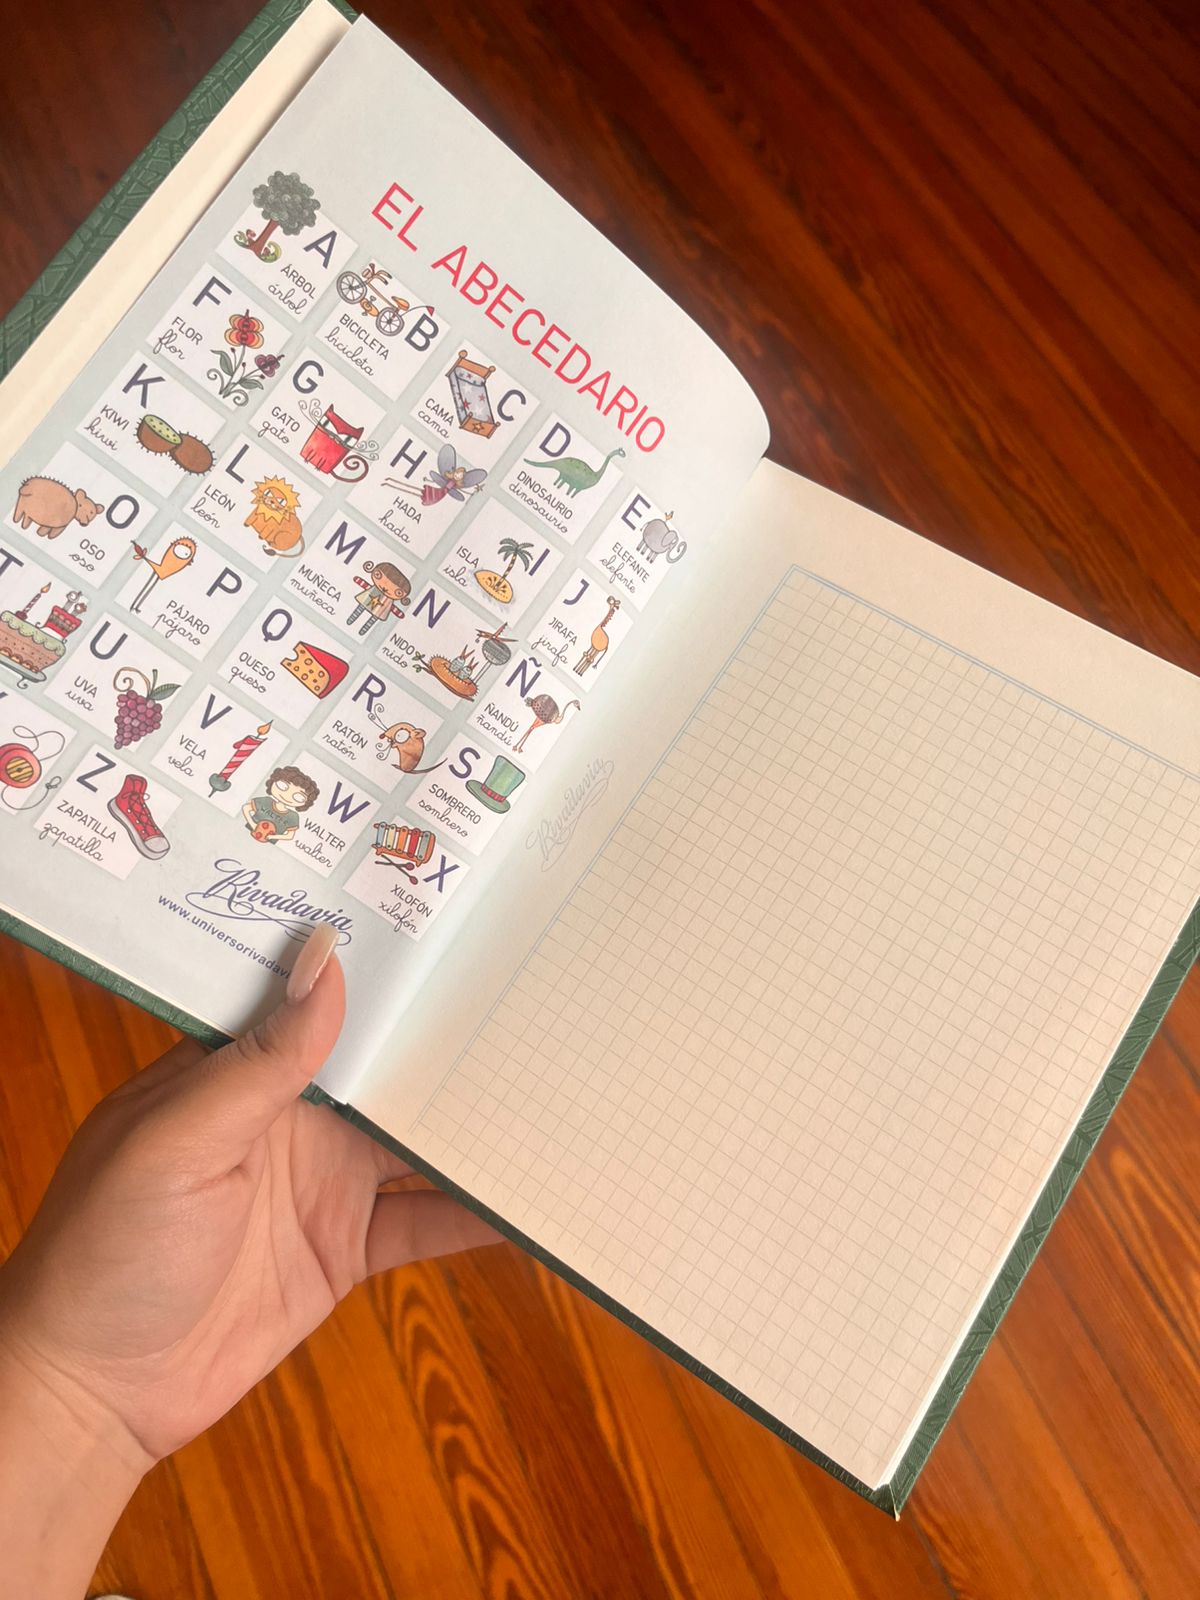 EL ABECEDARIO
A
ÁRBOL
árbol
B
BICICLETA
bicicleta
C
CAMA
cama
D
DINOSAURIO
dinosaurio
E
ELEFANTE
elefante
F
FLOR
flor
G
GATO
gato
H
HADA
hada
I
ISLA
isla
J
JIRAFA
jirafa
K
KIWI
kiwi
L
LEÓN
león
M
MUÑECA
muñeca
N
NIDO
nido
Ñ
ÑANDÚ
ñandú
O
OSO
oso
P
PÁJARO
pájaro
Q
QUESO
queso
R
RATÓN
ratón
S
SOMBRERO
sombrero
T
U
UVA
uva
V
VELA
vela
WALTER
W
WALTER
walter
X
XILOFÓN
xilofón
Y
Z
ZAPATILLA
zapatilla
Rivadavia
www.universorivadavi
Rivadavia